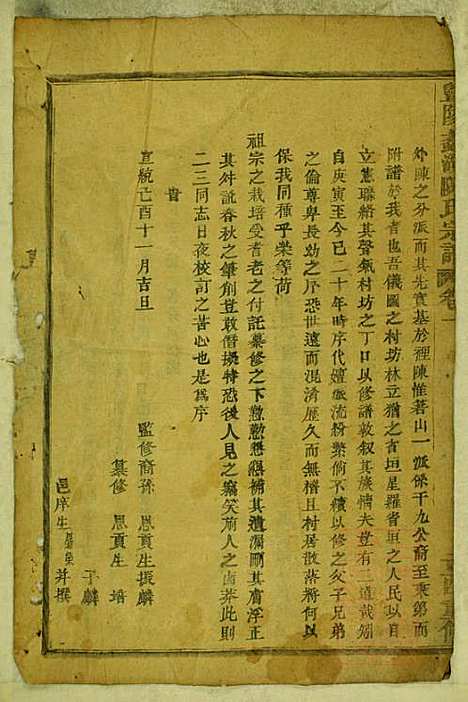 外陳之分派而其先實基於裡陳惟著山一派係千九公裔至秉第而
附譜於我者也吾儀國之村坊林立猶之省垣星羅省垣之人民以自
立憲聯絡其聲氣村坊之丁口以修譜敦叙其族情夫豈有二道哉矧
自庚寅至今已二十年時序代嬗派流紛繁倘不續以修之父子兄弟
之倫尊卑長幼之序恐世遠而混淆歷久而無稽且村居散落將何以
保我同種乎榮等荷
祖宗之栽培受耆老之付託纂修之下懃懃懇懇補其遺漏剛其膚浮正
其舛訛春秋之筆削豈敢僭擬特恐後人見之竊笑前人之鹵莽此則
二三同志日夜校訂之苦心也是為序
旹
宣統己酉十一月吉旦
監修裔孫 恩貢生振麟
纂修 恩貢生 培
邑庠生 榮 于麟 并撰
陳氏宗譜 卷一
重修